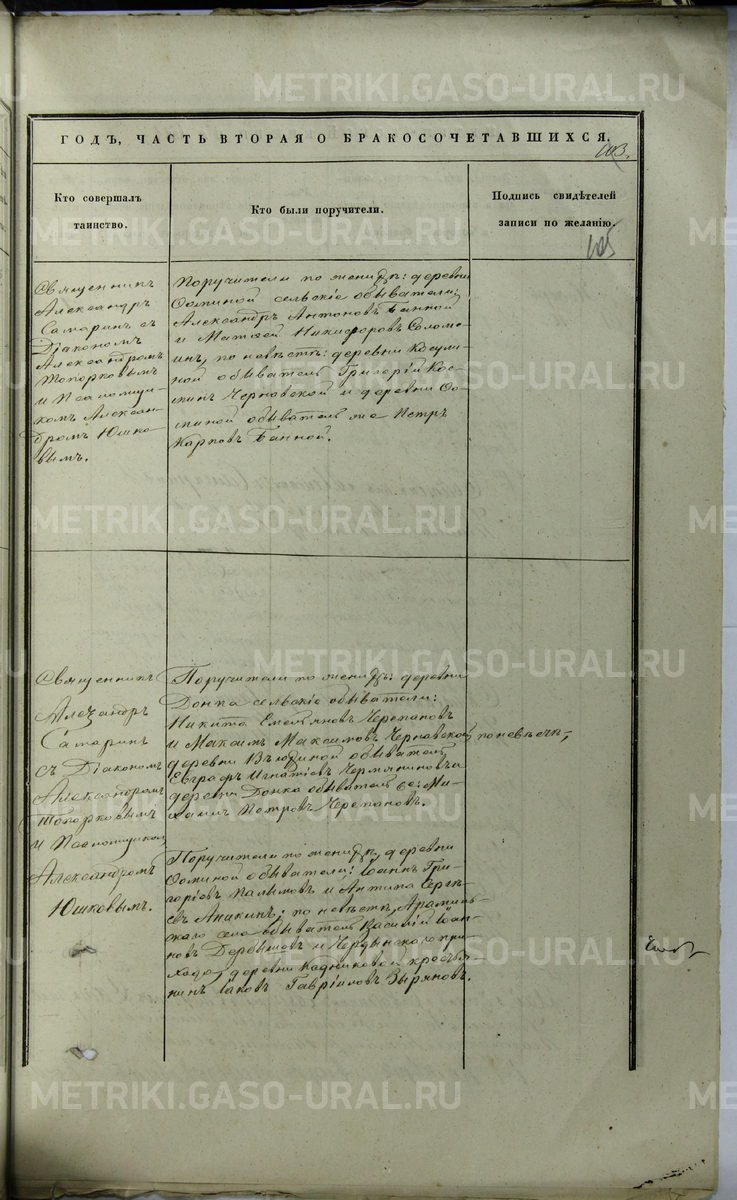 METRIKI.GASO-URAL.RU
ГОДЪ, ЧАСТЬ ВТОРАЯ О БРАКОСОЧЕТАВШИХСЯ.
103.
Кто совершалъ
таинство.
Кто были поручители.
Подпись свидѣтелей
записи по желанію.
105
Священникъ
Александръ
Сатаринъ съ
Діакономъ
Александромъ
Топорковымъ
и Псаломщи-
комъ Алексан-
дромъ Юшко-
вымъ.
Поручители по женихѣ: деревни
сельскіе обыватели:
Александръ Антоновъ Банной
и Матѳей Никифоровъ Солом-
инъ, по невѣстѣ: деревни Косули-
ной обыватель Григорій Кос-
минъ Черновской и деревни
обыватель же Петръ
Карповъ Банной.
Священникъ
Александръ
Сатаринъ
съ Діакономъ
Александромъ
Топорковымъ
и Псаломщикомъ
Александромъ
Юшковымъ.
Поручители по женихѣ: деревни
сельскіе обыватели:
Никита Емельяновъ Черепановъ
и Максимъ Максимовъ Черновской, по невѣстѣ,
деревни обыватель
Евграфъ Игнатіевъ
деревни обыватель Ми-
хаилъ Петровъ Черепановъ.
Поручители по женихѣ деревни
обыватели: Іоаннъ Гри-
горіевъ и Антипа Сергѣ-
евъ Аникинъ; по невѣстѣ, Арамиль-
скаго села обыватель Василій Іоан-
новъ Дерябинъ и при-
хода, деревни Кадниковой крестья-
нинъ Іаковъ Гавріиловъ Зыряновъ.